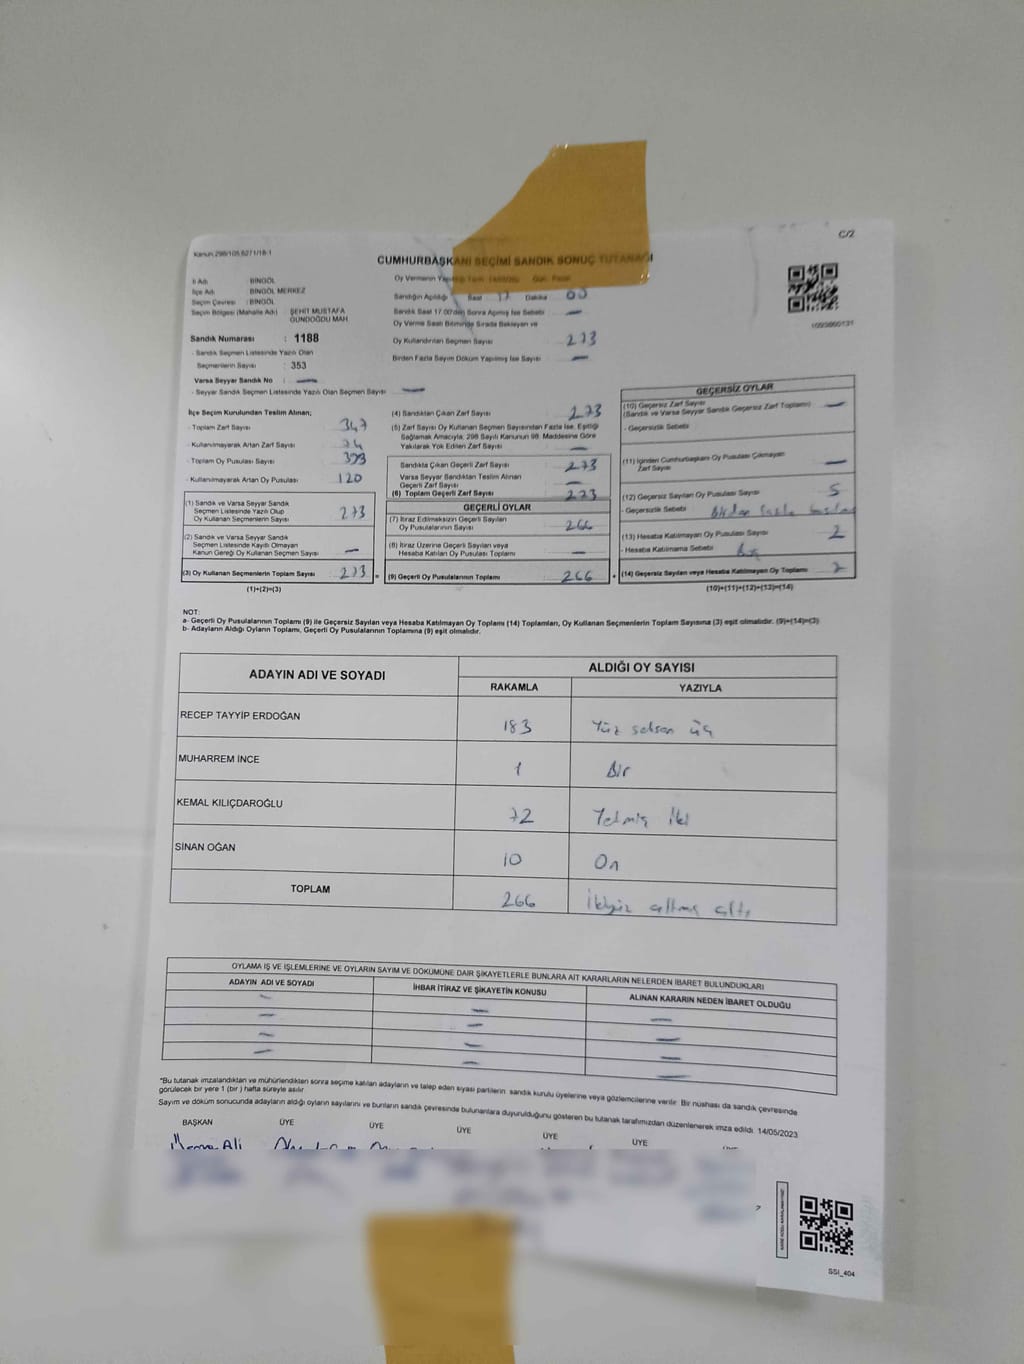 C/2
Kanun:298/105,6271/18-1
CUMHURBAŞKANI SEÇİMİ SANDIK SONUÇ TUTANAĞI
İl Adı : BİNGÖL
İlçe Adı : BİNGÖL MERKEZ
Seçim Çevresi : BİNGÖL
Seçim Bölgesi (Mahalle Adı) : ŞEHİT MUSTAFA GÜNDOĞDU MAH
Sandık Numarası : 1188
- Sandık Seçmen Listesinde Yazılı Olan
Seçmenlerin Sayısı : 353
Varsa Seyyar Sandık No : —
- Seyyar Sandık Seçmen Listesinde Yazılı Olan Seçmen Sayısı —
Oy Vermenin
Sandığın Açıldığı Saat 17 Dakika 00
Sandık Saat 17.00'den Sonra Açılmış İse Sebebi —
Oy Verme Saati Bitiminde Sırada Bekleyen ve
Oy Kullandırılan Seçmen Sayısı 273
Birden Fazla Sayım Döküm Yapılmış İse Sayısı —
İlçe Seçim Kurulundan Teslim Alınan;
- Toplam Zarf Sayısı 347
- Kullanılmayarak Artan Zarf Sayısı 74
- Toplam Oy Pusulası Sayısı 393
- Kullanılmayarak Artan Oy Pusulası 120
(1) Sandık ve Varsa Seyyar Sandık
Seçmen Listesinde Yazılı Olup
Oy Kullanan Seçmenlerin Sayısı 273
(2) Sandık ve Varsa Seyyar Sandık
Seçmen Listesinde Kayıtlı Olmayan
Kanun Gereği Oy Kullanan Seçmen Sayısı —
(3) Oy Kullanan Seçmenlerin Toplam Sayısı 273
(1)+(2)=(3)
(4) Sandıktan Çıkan Zarf Sayısı 273
(5) Zarf Sayısı Oy Kullanan Seçmen Sayısından Fazla İse, Eşitliği
Sağlamak Amacıyla, 298 Sayılı Kanunun 98. Maddesine Göre
Yakılarak Yok Edilen Zarf Sayısı —
Sandıkta Çıkan Geçerli Zarf Sayısı 273
Varsa Seyyar Sandıktan Teslim Alınan
Geçerli Zarf Sayısı —
(6) Toplam Geçerli Zarf Sayısı 273
GEÇERLİ OYLAR
(7) İtiraz Edilmeksizin Geçerli Sayılan
Oy Pusulalarının Sayısı 266
(8) İtiraz Üzerine Geçerli Sayılan veya
Hesaba Katılan Oy Pusulası Toplamı —
(9) Geçerli Oy Pusulalarının Toplamı 266
GEÇERSİZ OYLAR
(10) Geçersiz Zarf Sayısı
(Sandık ve Varsa Seyyar Sandık Geçersiz Zarf Toplamı) —
- Geçersizlik Sebebi
(11) İçinden Cumhurbaşkanı Oy Pusulası Çıkmayan
Zarf Sayısı —
(12) Geçersiz Sayılan Oy Pusulası Sayısı 5
- Geçersizlik Sebebi Birden fazla
(13) Hesaba Katılmayan Oy Pusulası Sayısı 2
- Hesaba Katılmama Sebebi
(14) Geçersiz Sayılan veya Hesaba Katılmayan Oy Toplamı
(10)+(11)+(12)+(13)=(14)
NOT:
a- Geçerli Oy Pusulalarının Toplamı (9) ile Geçersiz Sayılan veya Hesaba Katılmayan Oy Toplamı (14) Toplamları, Oy Kullanan Seçmenlerin Toplam Sayısına (3) eşit olmalıdır. (9)+(14)=(3)
b- Adayların Aldığı Oyların Toplamı, Geçerli Oy Pusulalarının Toplamına (9) eşit olmalıdır.
ADAYIN ADI VE SOYADI ALDIĞI OY SAYISI
RAKAMLA YAZIYLA
RECEP TAYYİP ERDOĞAN 183 Yüz seksen üç
MUHARREM İNCE 1 Bir
KEMAL KILIÇDAROĞLU 72 Yetmiş iki
SİNAN OĞAN 10 On
TOPLAM 266 İkiyüz altmış altı
OYLAMA İŞ VE İŞLEMLERİNE VE OYLARIN SAYIM VE DÖKÜMÜNE DAİR ŞİKAYETLERLE BUNLARA AİT KARARLARIN NELERDEN İBARET BULUNDUKLARI
ADAYIN ADI VE SOYADI İHBAR İTİRAZ VE ŞİKAYETİN KONUSU ALINAN KARARIN NEDEN İBARET OLDUĞU
— — —
— — —
— — —
— — —
*Bu tutanak imzalandıktan ve mühürlendikten sonra seçime katılan adayların ve talep eden siyasi partilerin sandık kurulu üyelerine veya gözlemcilerine verilir. Bir nüshası da sandık çevresinde
görülecek bir yere 1 (bir) hafta süreyle asılır.
Sayım ve döküm sonucunda adayların aldığı oyların sayılarını ve bunların sandık çevresinde bulunanlara duyurulduğunu gösteren bu tutanak tarafımızdan düzenlenerek imza edildi. 14/05/2023
BAŞKAN ÜYE ÜYE ÜYE ÜYE ÜYE
Ali
SSI_404